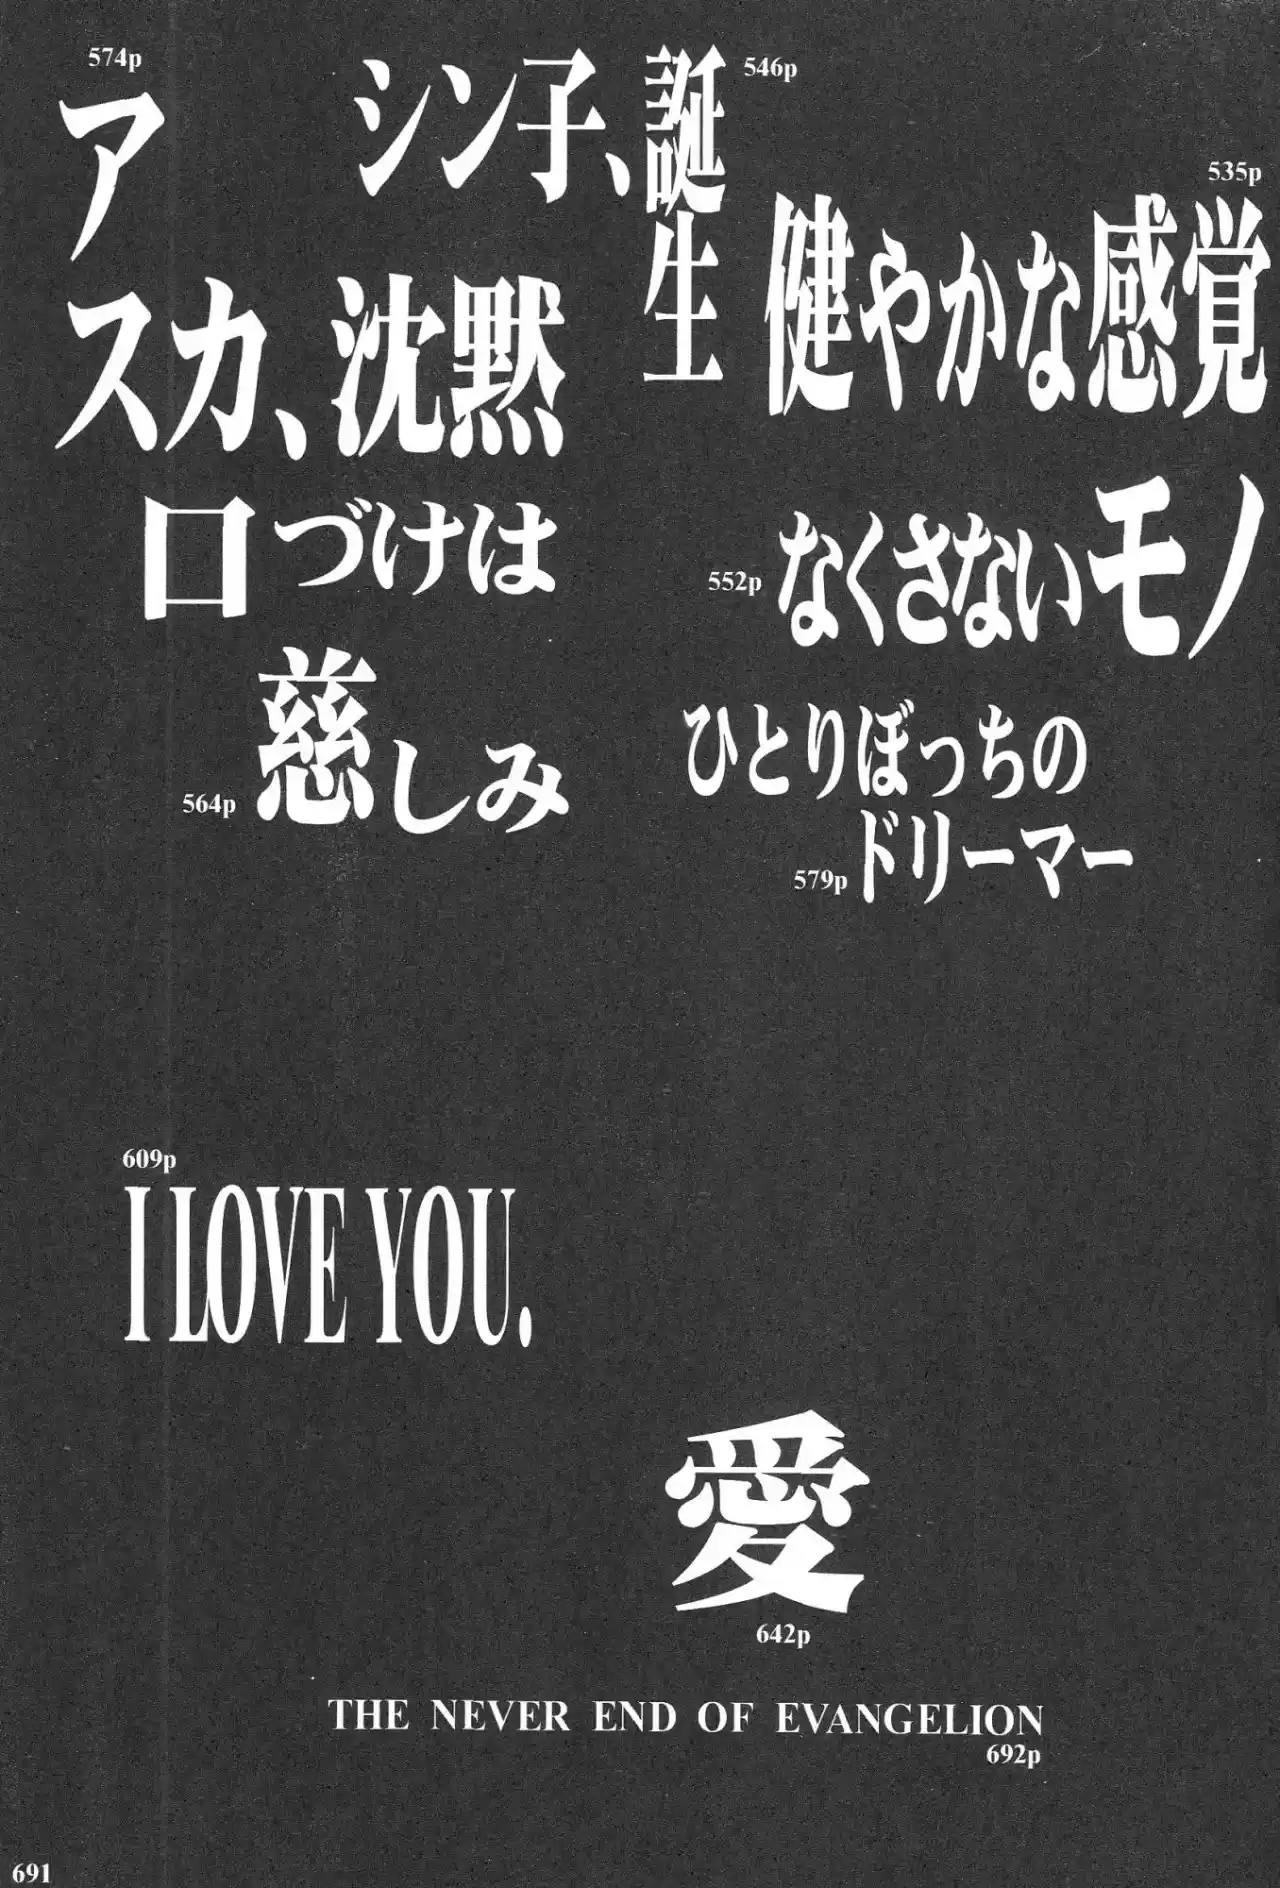 535p
健やかな感覚
546p
シン子、誕
生
574p
ア
スカ、沈黙
552p
なくさないモノ
口づけは
慈しみ
564p
ひとりぼっちの
ドリーマー
579p
609p
I LOVE YOU.
愛
642p
THE NEVER END OF EVANGELION
692p
691